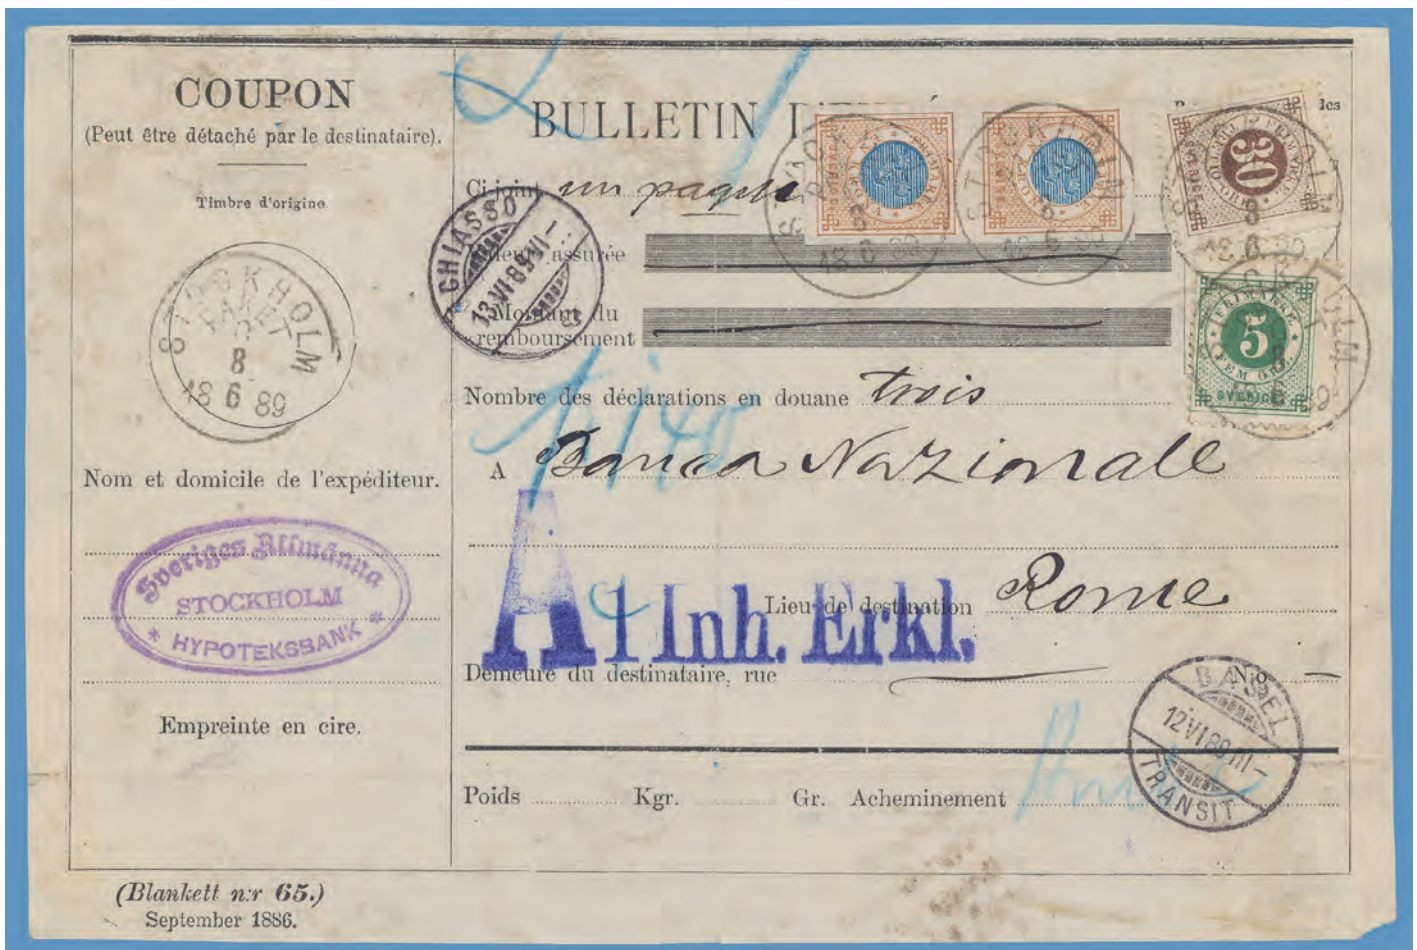 COUPON
(Peut être détaché par le destinataire).
Timbre d'origine
STOCKHOLM
PAKET
8
18 6 89
Nom et domicile de l'expéditeur.
Sveriges Allmänna
STOCKHOLM
* HYPOTEKSBANK *
Empreinte en cire.
(Blankett n:r 65.)
September 1886.
BULLETIN
Ci-joint un paquet
CHIASSO
13.VI.89.VI–
assurée
Montant du
remboursement
Nombre des déclarations en douane trois
A Banca Nazionale
Lieu de destination Rome
A 1 Inh. Erkl.
Demeure du destinataire, rue
N:o
BASEL
12.VI.89.III–
TRANSIT
Poids Kgr. Gr. Acheminement
STOCKHOLM
8
18 6 89
STOCKHOLM
8
18 6 89
30
STOCKHOLM
8
18 6 89
FRIMÄRKE
5
FEM ÖRE
SVERIGE